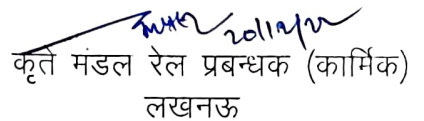 20/12/22
कृते मंडल रेल प्रबन्धक (कार्मिक)
लखनऊ